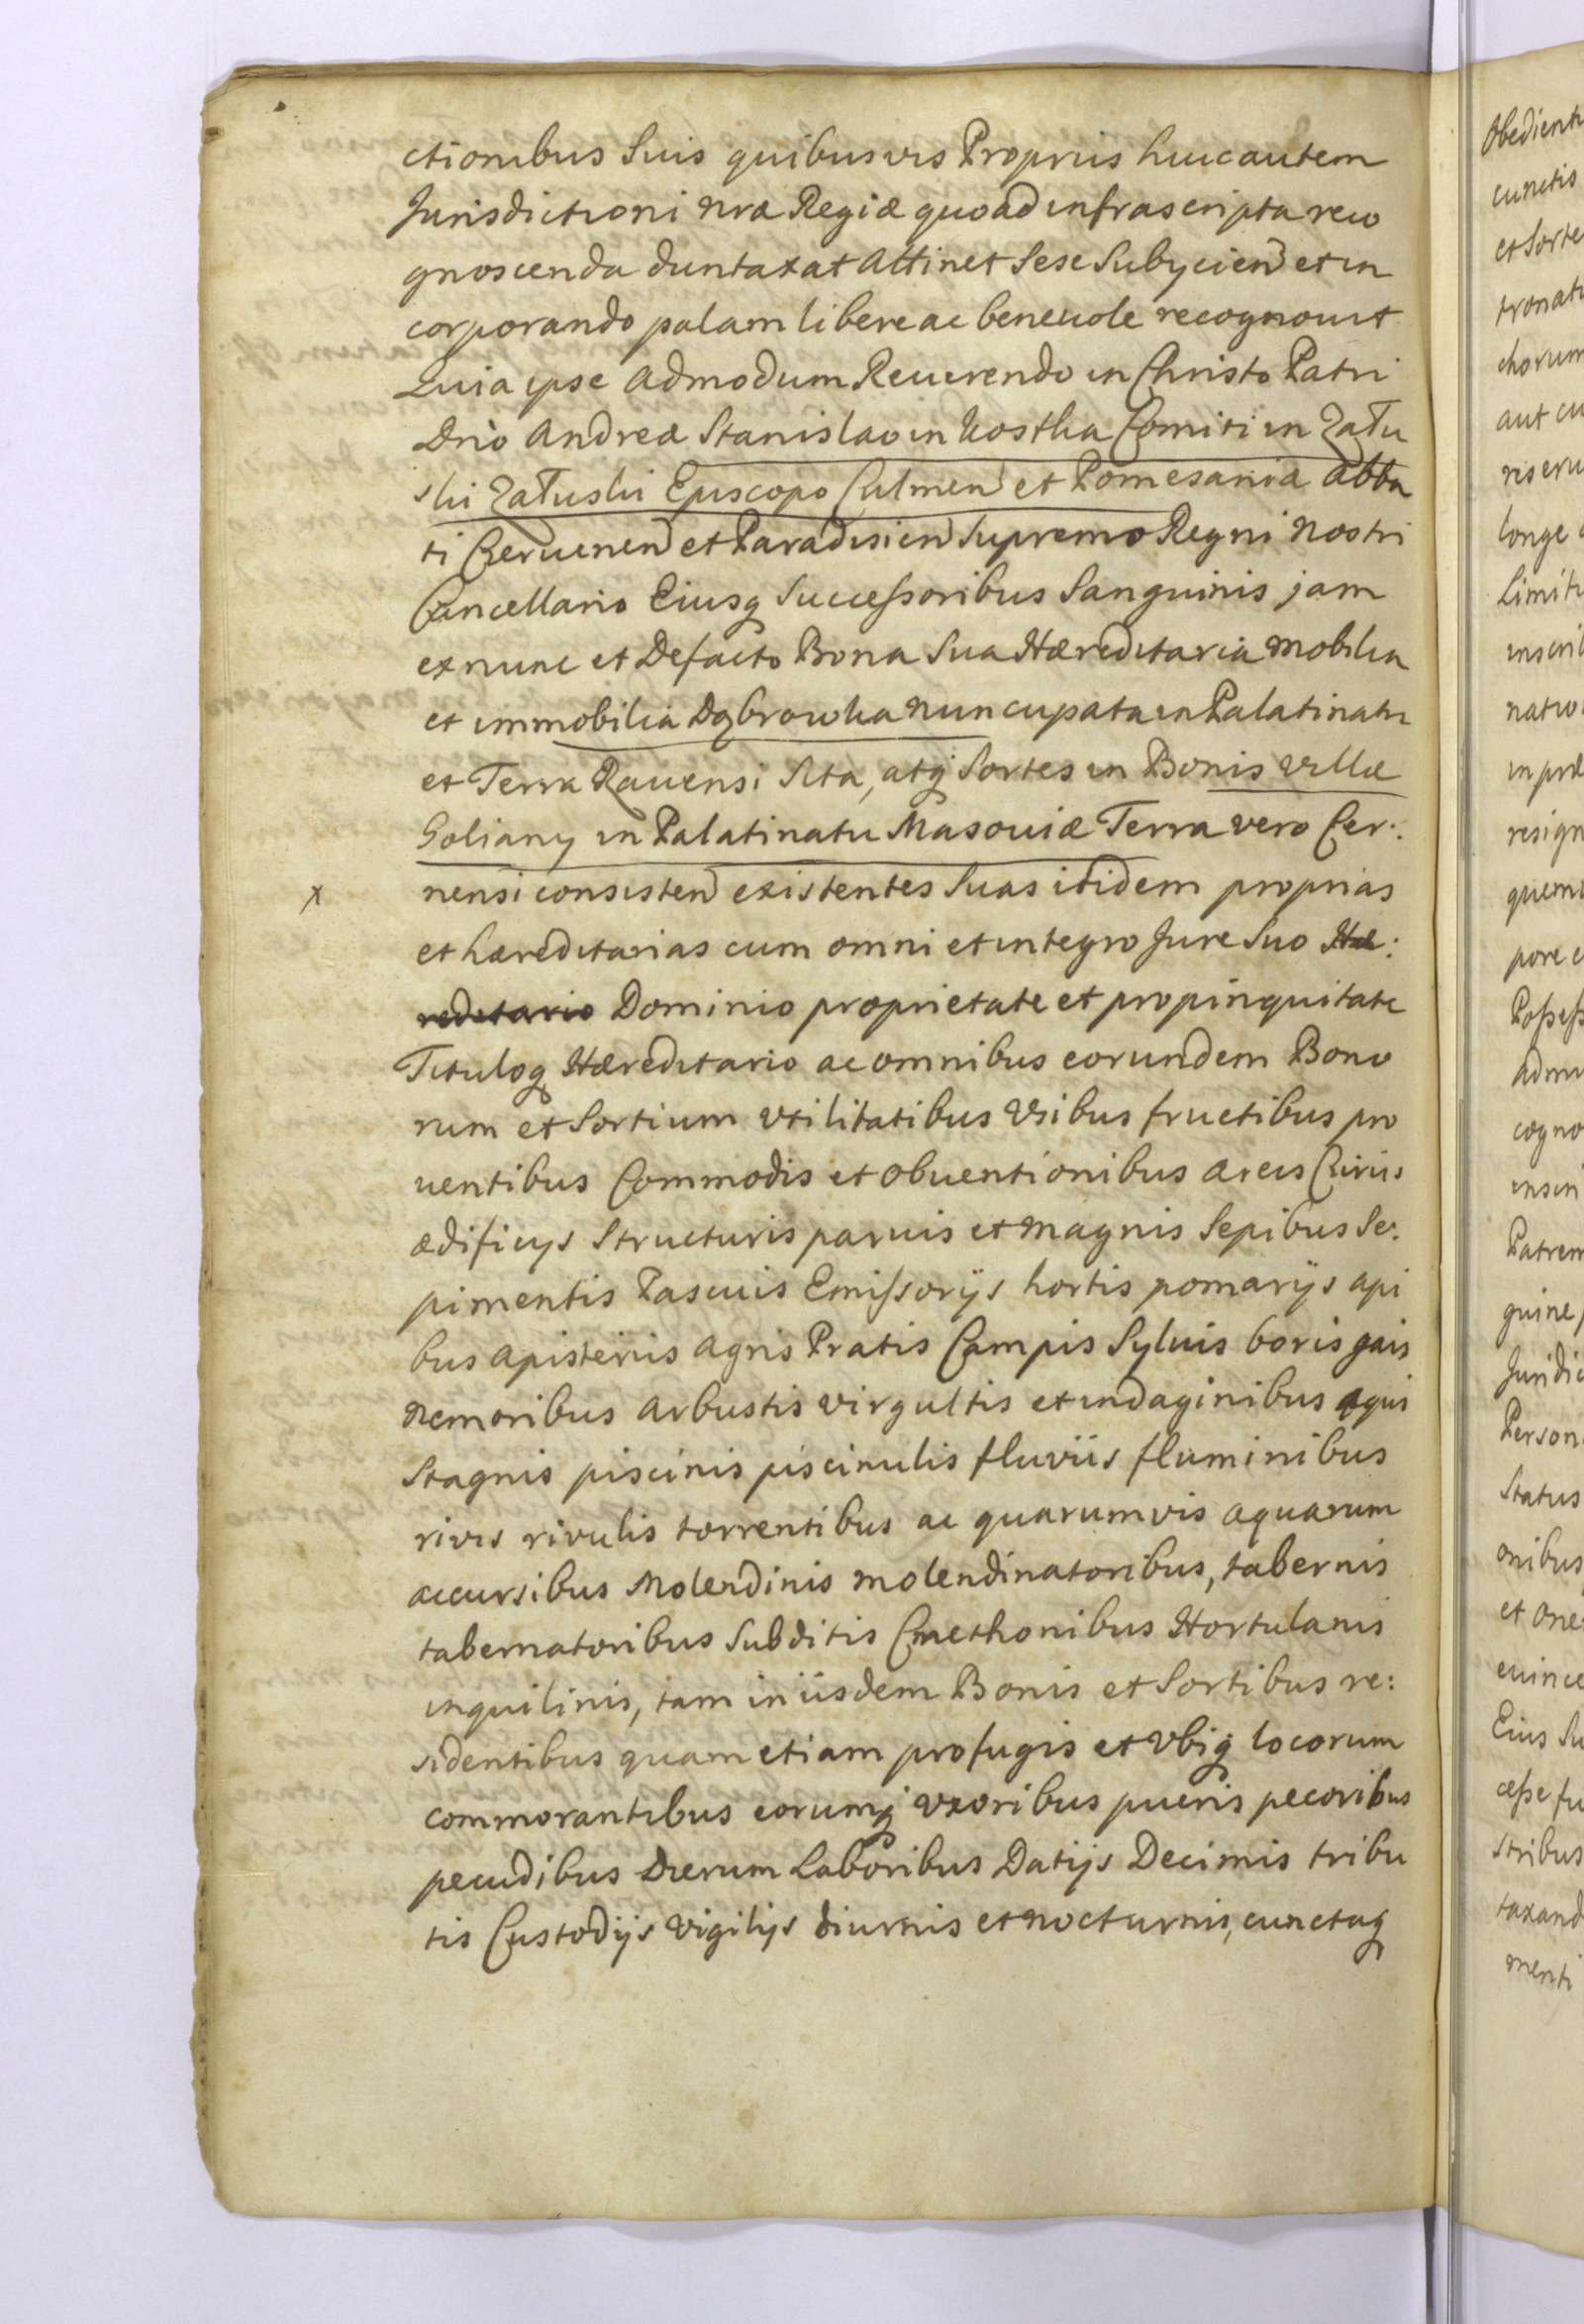 ctionibus Suis quibusvis Propriis huic autem
Jurisdictioni nræ Regiæ quoad infrascripta reco
gnoscenda duntaxat attinet Sese Subycien et in
corporando palam libere ac beneuole recognouit
Quia ipse Admodum Reuerendo in Christo Patri
Dnò Andreæ Stanislao in Kostka Comiti in Zału
ski Załuski Episcopo Culmen et Pomesaniæ Abba
ti Ceruenen et Paradisien Supremo Regni Nostri
Cancellario Eiusq Successoribus Sanguinis jam
ex nunc et Defacto Bona Sua Hæreditaria Mobilia
et immobilia Dąbrowka nuncupata in Palatinatu
et Terra Rauensi Sita, atq Sortes in Bonis Villæ
Goliany in Palatinatu Masouiæ Terra vero Cer:
x nensi consisten existentes Suas ibidem proprias
et hæreditarias cum omni et integro Jure Suo Hæ:
reditario Dominio proprietate et propinquitate
Tituloq Hæreditario ac omnibus eorundem Bono
rum et Sortium Vtilitatibus Vsibus fructibus pro
uentibus Commodis et obuentionibus areis Curiis
ædificys Structuris paruis et magnis Sepibus Se:
pimentis Pascuis Emissorijs hortis pomarijs api
bus apisteriis Agris Pratis Campis Syluis boris gais
Nemoribus Arbustis virgultis et indaginibus aquis
Stagnis piscinis piscinulis fluviis fluminibus
rivis rivulis torrentibus ac quarumvis aquarum
accursibus Molendinis molendinatoribus, tabernis
tabernatoribus Subditis Cmethonibus Hortulanis
inquilinis, tam in iisdem Bonis et Sortibus re:
sidentibus quam etiam profugis et Vbiq locorum
commorantibus eorumq vxoribus pueris pecoribus
pecudibus Dierum Laboribus Datijs Decimis tribu
tis Custodijs Vigilijs diurnis et nocturnis, cunctaq
Obedienti
cunctis
et Sorte
tronat
chorum
aut cu
ris eru
longe
Limiti
inscrib
in præ
resign
quem
pore
Possess
cogno
Patrem
guine
Juridic
Person
Status
onibus
et one
euince
Eius Su
cesse fu
stribus
taxand
menti